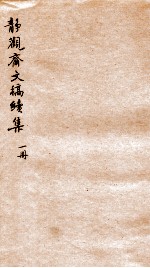 靜觀齋文稿續集 一冊